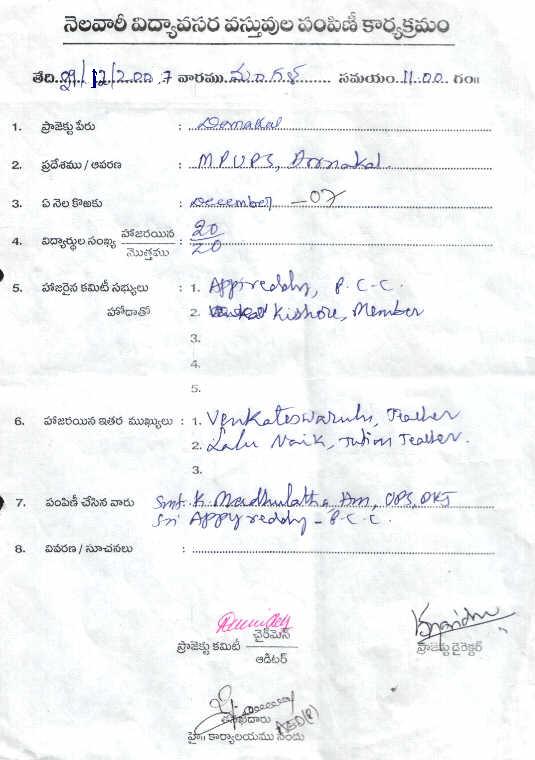 నెలవారీ విద్యావసర వస్తువుల పంపిణీ కార్యక్రమం
తేది. /12/2007 వారము మంగళ సమయం. 11.00 గం॥
1. ప్రాజెక్టు పేరు : Dornakal
2. ప్రదేశము / ఆవరణ : MPUPS, Dornakal.
3. ఏ నెల కొఱకు : December -07
4. విద్యార్థుల సంఖ్య హాజరయిన : 20
మొత్తము 20
5. హాజరైన కమిటీ సభ్యులు : 1. Appireddy, P.C-C.
హోదాతో 2. Kishore, Member
3.
4.
5.
6. హాజరయిన ఇతర ముఖ్యులు : 1. Venkateswarulu, Teacher
2. Lalu Naik, Tution Teacher.
3.
7. పంపిణీ చేసిన వారు Smt. K. Madhulatha Hm, UPS, DKJ
Sri Appyreddy - P.C.C.
8. వివరణ / సూచనలు :
ప్రాజెక్టు కమిటీ చైర్‌మెన్
ఆడిటర్
ప్రాజెక్టు డైరెక్టర్
తనిఖీదారు
హై॥ కార్యాలయము నందు